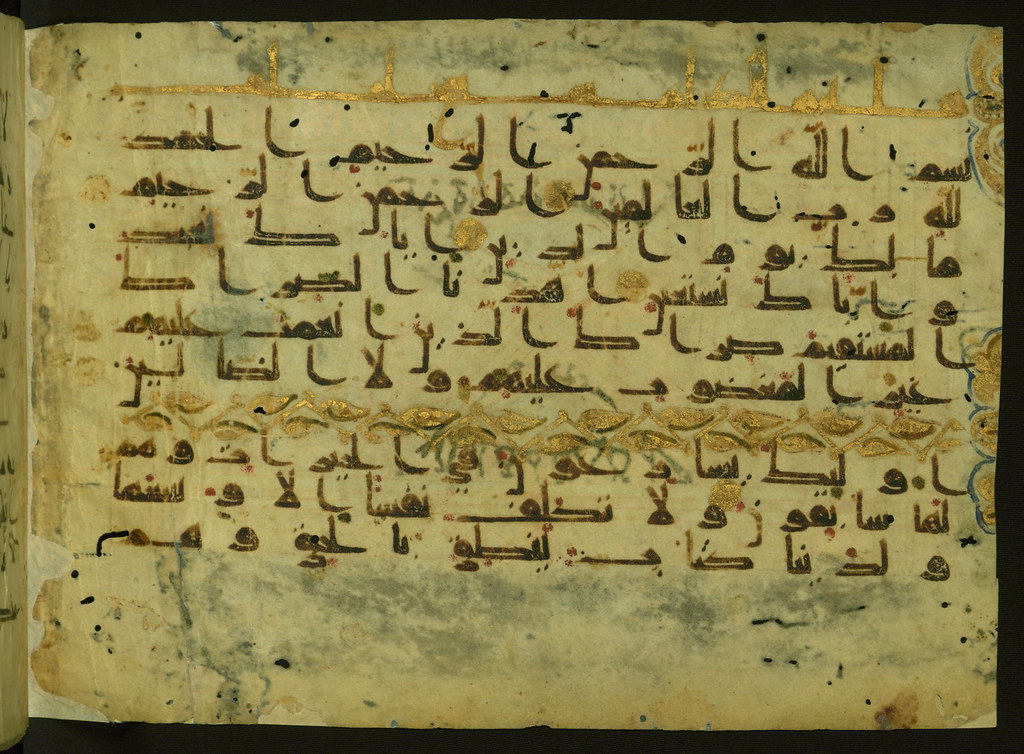 بسم الله الرحمن الرحيم الحمد
لله رب العلمين الرحمن الرحيم
مالك يوم الدين اياك نعبد
و اياك نستعين اهدنا الصراط
المستقيم صراط الذين انعمت عليهم
غير المغضوب عليهم و لا الضالين
اوليك يسارعون في الخيرات وهم
لها سابقون و لا نكلف نفسا الا وسعها
و لدينا كتاب ينطق بالحق و هم